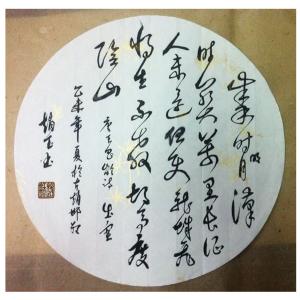 秦时明月漢
时关萬里长征
人未还但使龙城飞
将在不教胡马度
陰山 唐王昌龄诗出塞
乙未年夏於古赵邯郸
书